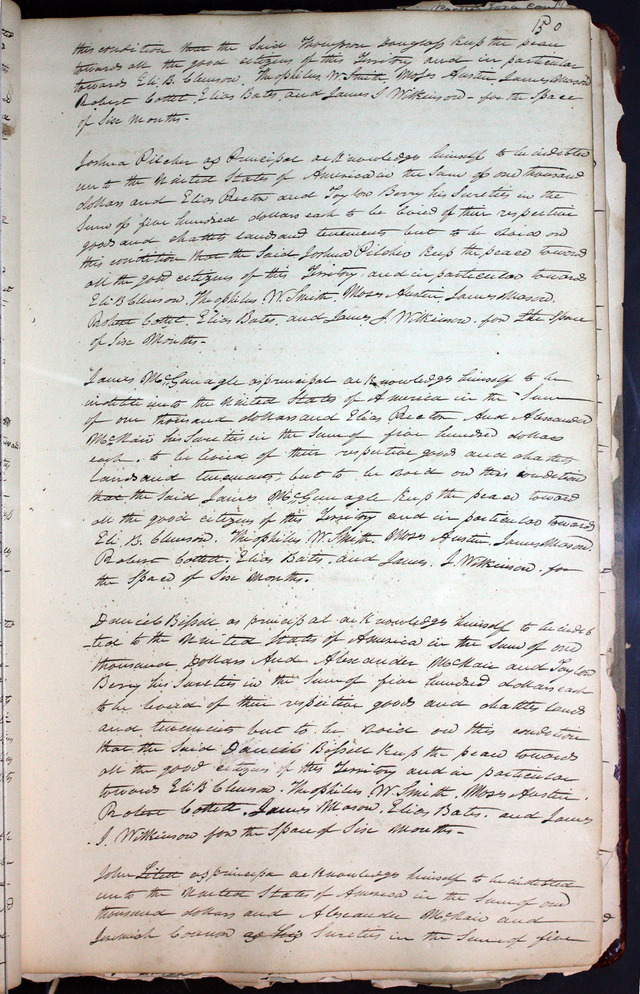 150
this condition that the Said Thompson Douglass keep the peace
towards all the good citizens of this Territory and in particular
towards Eli. B. Clemson, Theophilus W. Smith, Moses Austin, James Mason
Robert Cottell, Elias Bates, and James J Wilkinson - for the Space
of Six Months -
Joshua Pilcher as Principal acknowledges himself to be indebted
unto the United States of America in the Sum of one thousand
dollars and Elias Rector and Taylor Berry his Sureties in the
Sum of five hundred dollars each to be levied of their respective
goods and chattles lands and tenements but to be Void on
this condition that the Said Joshua Pilcher keep the peace toward
all the good citizens of this Territory, and in particular toward
Eli B Clemson, Theophilus, W. Smith, Moses Austin, James Mason.
Robert Cottell, Elias Bates, and James, J. Wilkinson, for the Space
of Six Months -
James McGunagle as principal acknowledges himself to be
indebted unto the United States of America in the Sum
of one thousand dollars and Elias Rector And Alexander
McNair his Sureties in the Sum of five hundred dollars
each, to be levied of their respective good and chattles
lands and tenements, but to be Void on this condition
that the Said James McGunagle keep the peace toward
all the good citizens of this Territory and in particular toward
Eli. B. Clemson, Theophilus W. Smith Moses Austin, James Mason,
Robert Cottell, Elias Bates, and James, J Wilkinson, for
the Space of Six Months.
Daniel Bissell as principal acknowledges himself to be indeb
-ted to the United States of America in the Sum of one
thousand Dollars And Alexander McNair and Taylor
Berry his Sureties in the Sum of five hundred dollars each
to be levied of their respective goods and chattles lands
and tenements but to be Void on this condition
that the Said Daniel Bissell keep the peace towards
all the good citizens of this Territory and in particular
towards Eli B Clemson, Theophilus W. Smith, Moses Austin.
Robert Cottell, James Mason, Elias Bates, and James
J. Wilkinson for the Space of Six Months -
John as principal acknowledges himself to be indebted
unto the United States of America in the Sum of one
thousand dollars and Alexander McNair and
Jeremiah Connor as his Sureties in the Sum of five